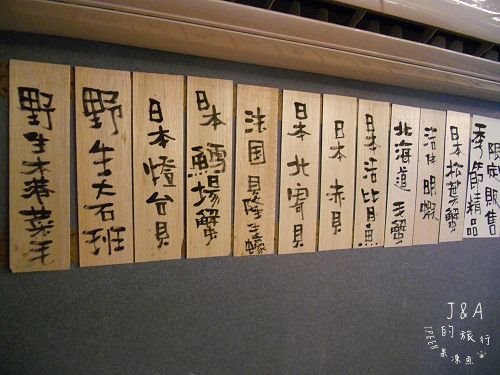 限定販售
季節精品
日本松葉蟹
活体明蝦
北海道王蟹
日本活比目魚
日本赤貝
日本北寄貝
法国貝隆生蠔
日本鱈場蟹
日本燈台貝
野生大石斑
野生
J&A
的旅行
IPEEN
果凍魚